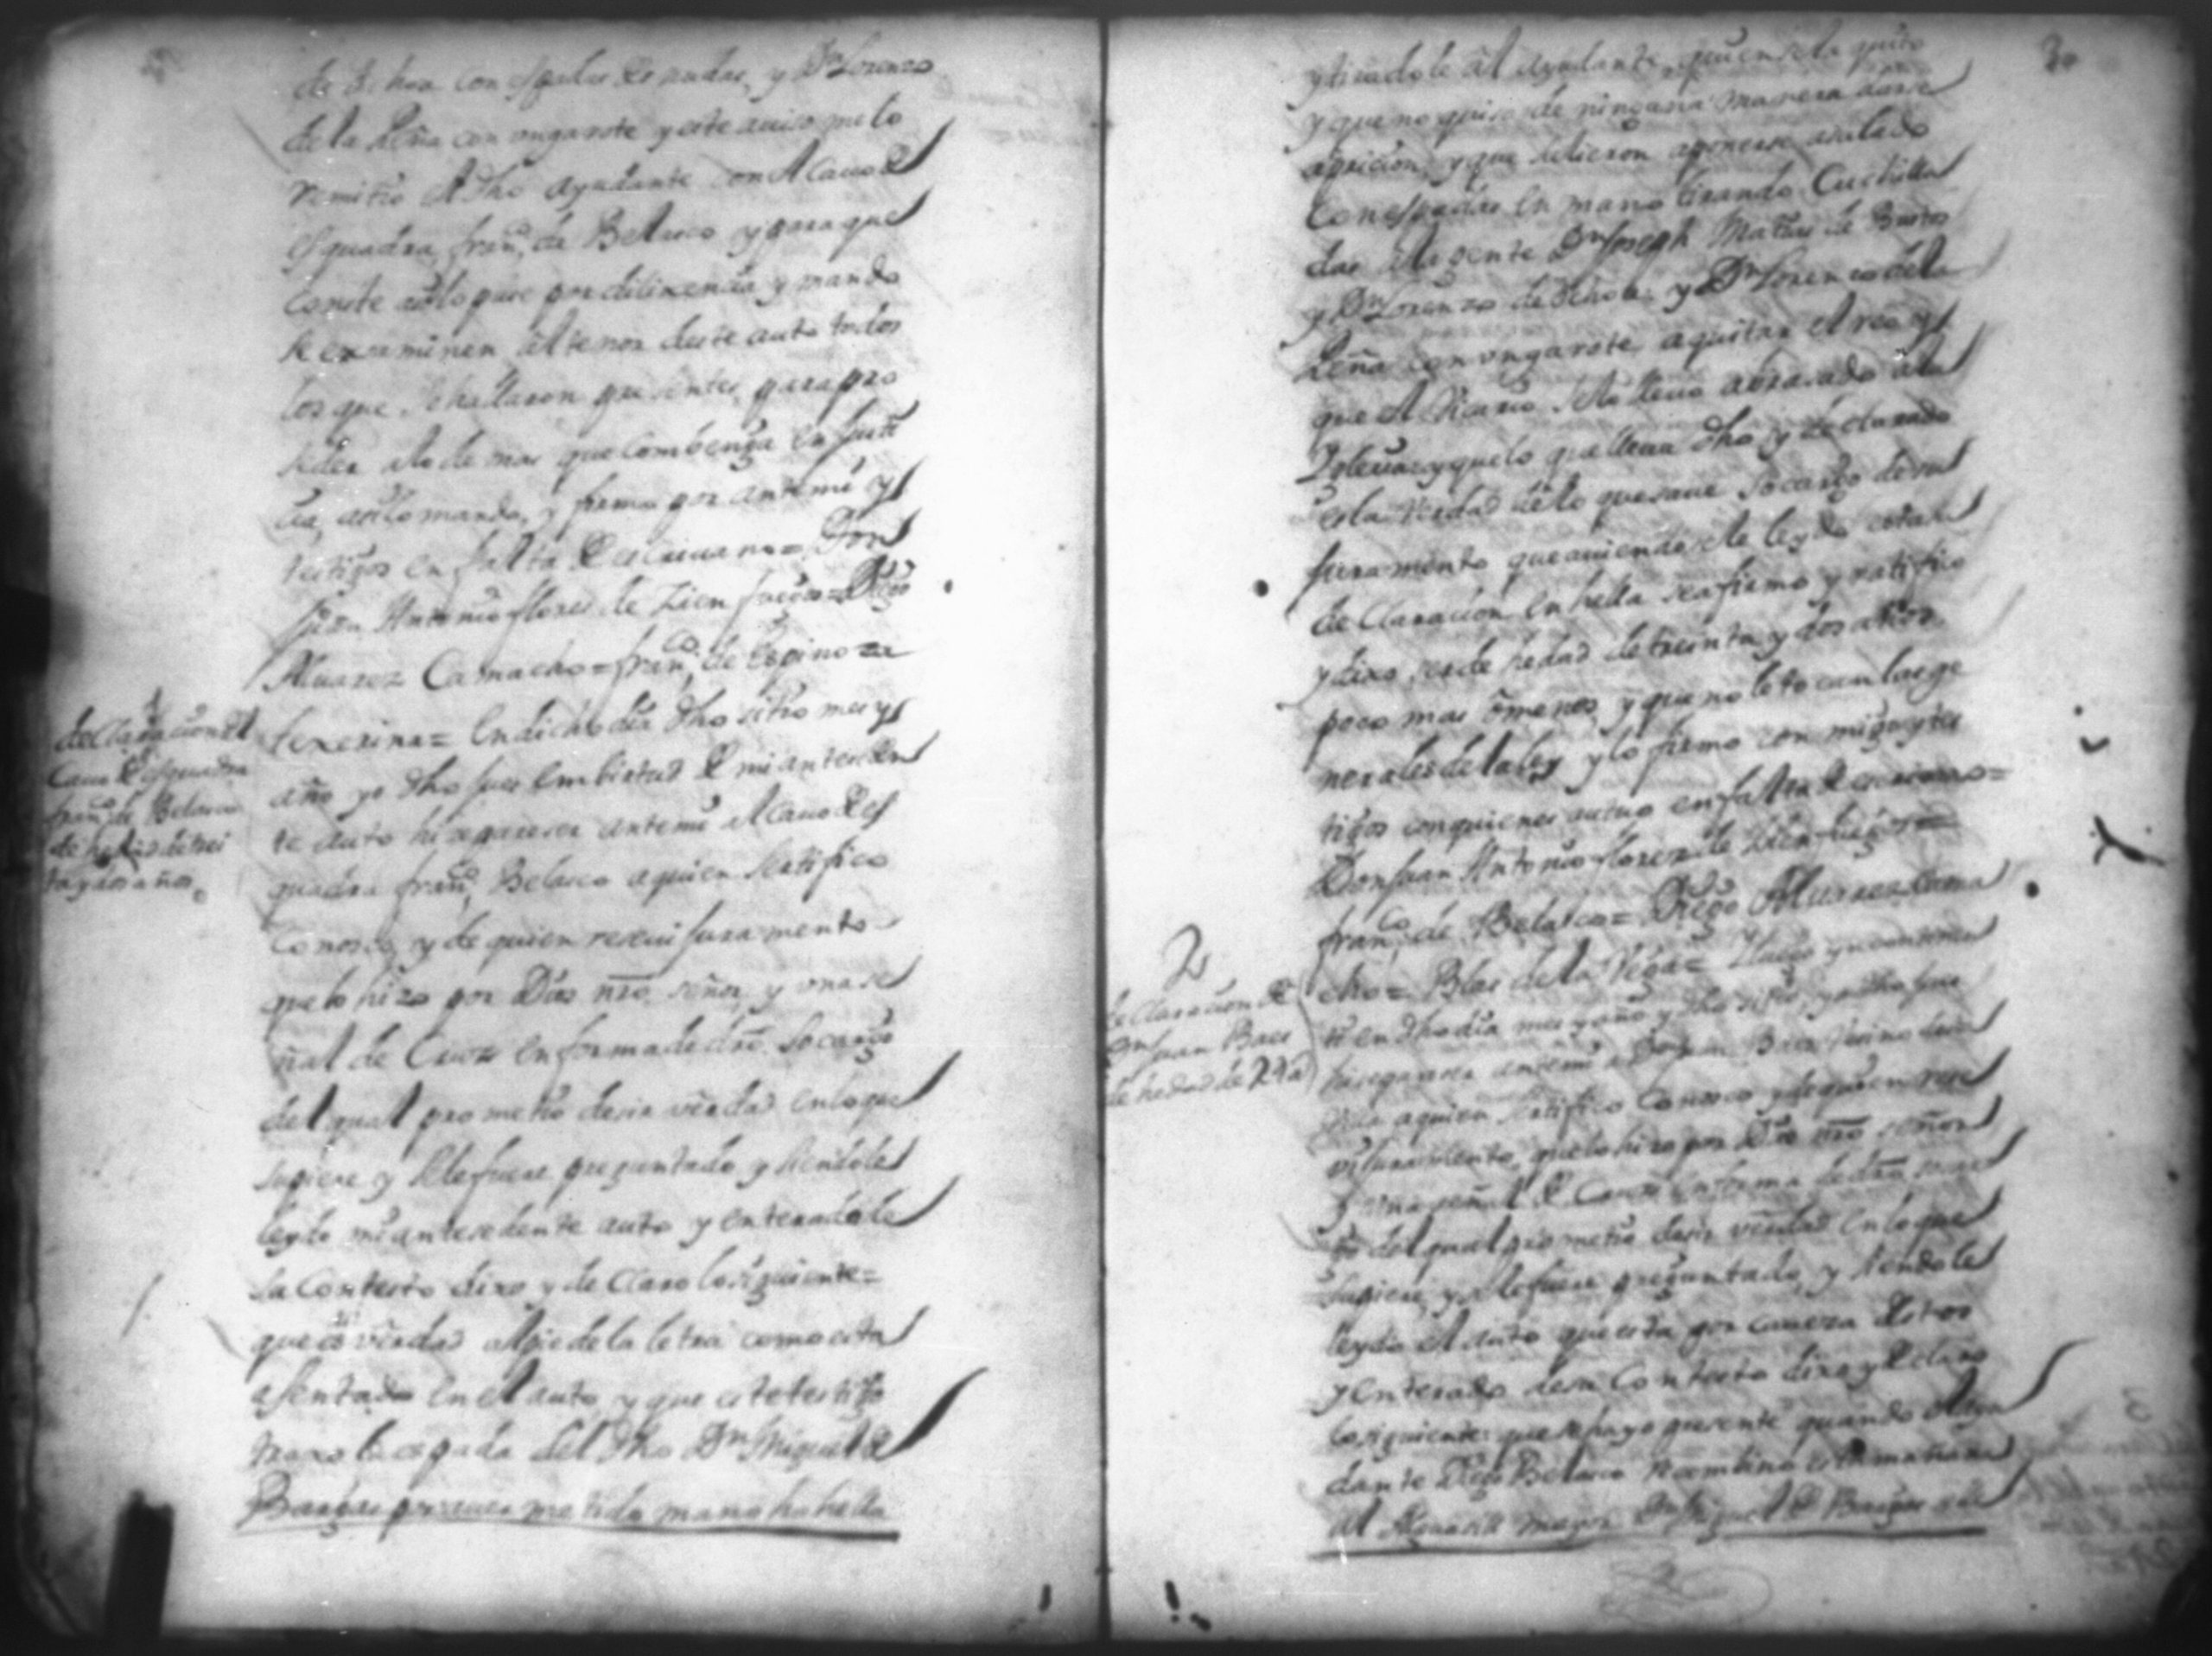 de Ochoa con espadas desnudas, y Dn Lorenzo
de la Peña con un garrote y este auiso me lo
remitio el dho ayudante con el Cauo de
esquadra, franco de Belasco y para que
Conste asi lo puse por dilixencia y mando
se examinen al tenor deste auto todos
los que se hallaron presentes, para pro
seder a lo de mas que Combenga en Justi
cia, asi lo mando, y firmo por ante mi y
testigos en falta de escriuano = Don
Juan Antonio flores de Zienfuegos = Diego
Aluarez Camacho = franco de Espinoza
= En dicho dia dho sitio mes y
año yo dho Juez em birtud de mi anteseden
te auto hise pareser ante mi al Cauo de es
quadra franco Belasco a quien sertifico
Conosco y de quien reseui Juramento
que lo hizo por Dios nro señor y vna se
ñal de Cruz en forma de dro so cargo
del qual prometio desir verdad en lo que
supiere y se le fuere preguntado y siendole
leydo mi antesedente auto y enteradole
su Contesto dixo y declaro lo siguiente =
que es verdad al pie de la letra como esta
asentado en el auto y que este testigo
la espada del dho Dn Miguel de
Bargas por auer metido mano ha hella
declaracion del
Cauo de esquadra
franco de Belasco
de hedad de trei
ta y dos años
30
y tiradole al ayudante, quien se la quito
y que no quiso de ninguna manera darse
a pricion, y que salieron a ponerse a su lado
con espadas en mano tirando Cuchilla
das a la gente Dn Joseph Matias de Bustos
y Dn Lorenzo de Ochoa y Dn Lorenzo de la
Peña con un garrote, a quitar el reo y
que el Vicario se lo lleuo abrasado a la
Yglecia y que lo que lleua dho y declarado
es la verdad de lo que saue so cargo de su
Juramento que auiendosele leydo esta su
declaracion en hella se afirmo y ratifico
y dixo ser de hedad de treinta y dos años
poco mas o menos y que no le tocan las ge
nerales de la ley y lo firmo con migo y tes
tigos con quienes autuo en falta de escriuano =
Don Juan Antonio flores de Zienfuegos =
franco de Belasco = Diego Aluarez Cama
cho = Blas de la Vega = Y luego yncontinen
ti en dho dia mes y año y dho sitio, yo dho Juez
hise pareser ante mi a Dn Juan Baes vecino desta
a quien sertifico Conosco y de quien rese
ui Juramento, que lo hizo por Dios nro señor
y vna señal de Cruz en forma de dro so car
go del qual prometio desir verdad en lo que
supiere y se le fuere preguntado, y siendole
leydo el auto que esta por caueza destos
y enterado de su Contesto dixo y declaro
lo siguiente: que se hayo presente quando el ayu
dante Diego Belasco esta mañana
al Alguasil mayor Dn Miguel de Bargas
2
declaracion de
Dn Juan Baes
de hedad de 24 a
3